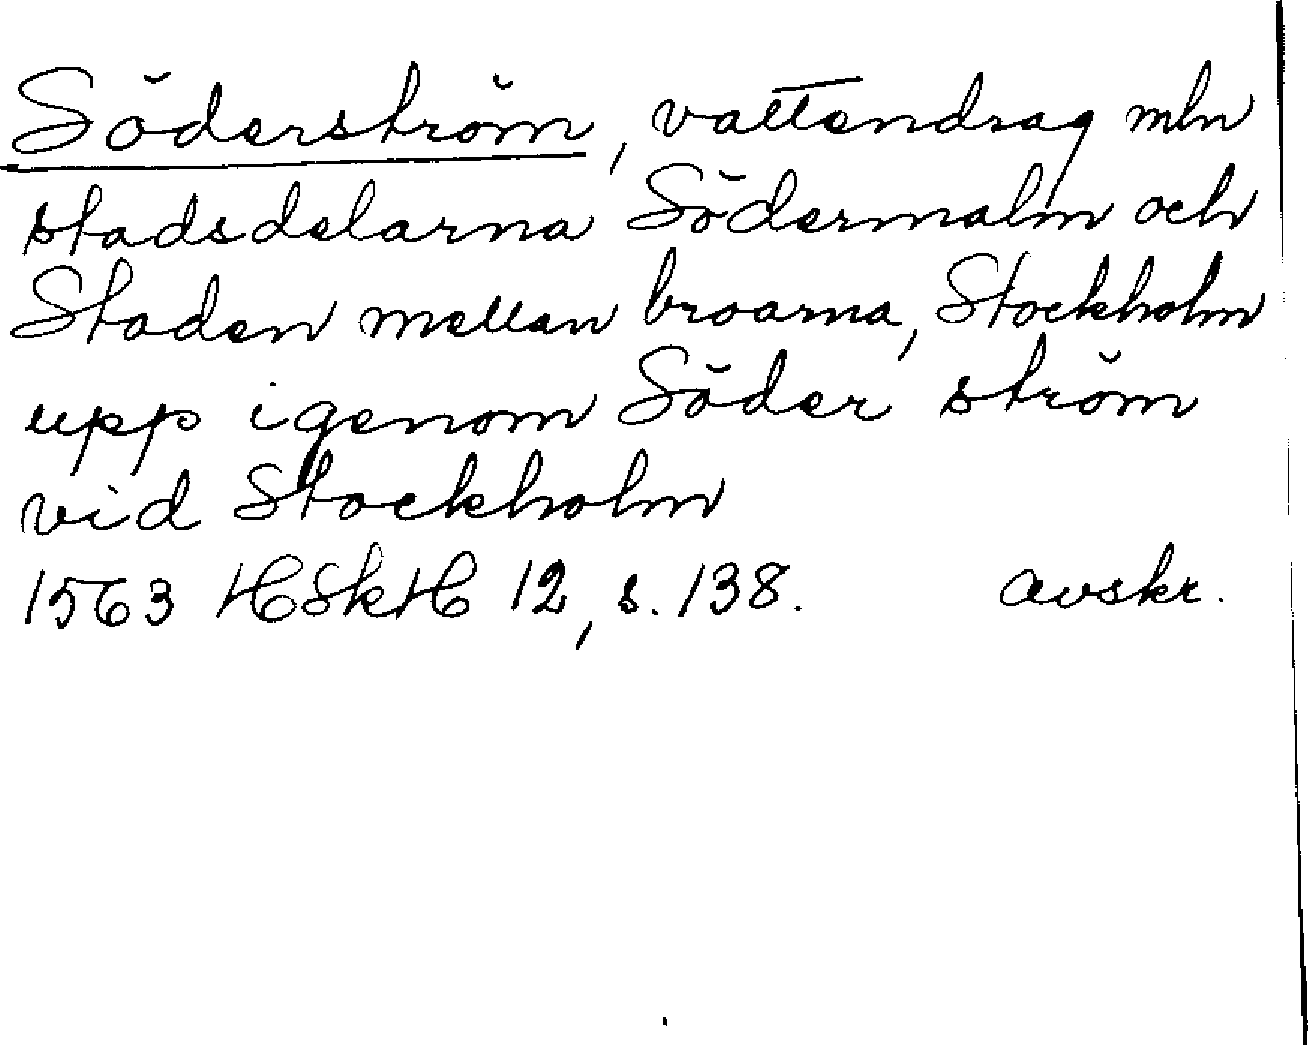 Söderström, vattendrag mln
stadsdelarna Södermalm och
Staden mellan broarna, Stockholm
upp igenom Söder ström
vid Stockholm
1563 HSkH 12, s. 138. avskr.